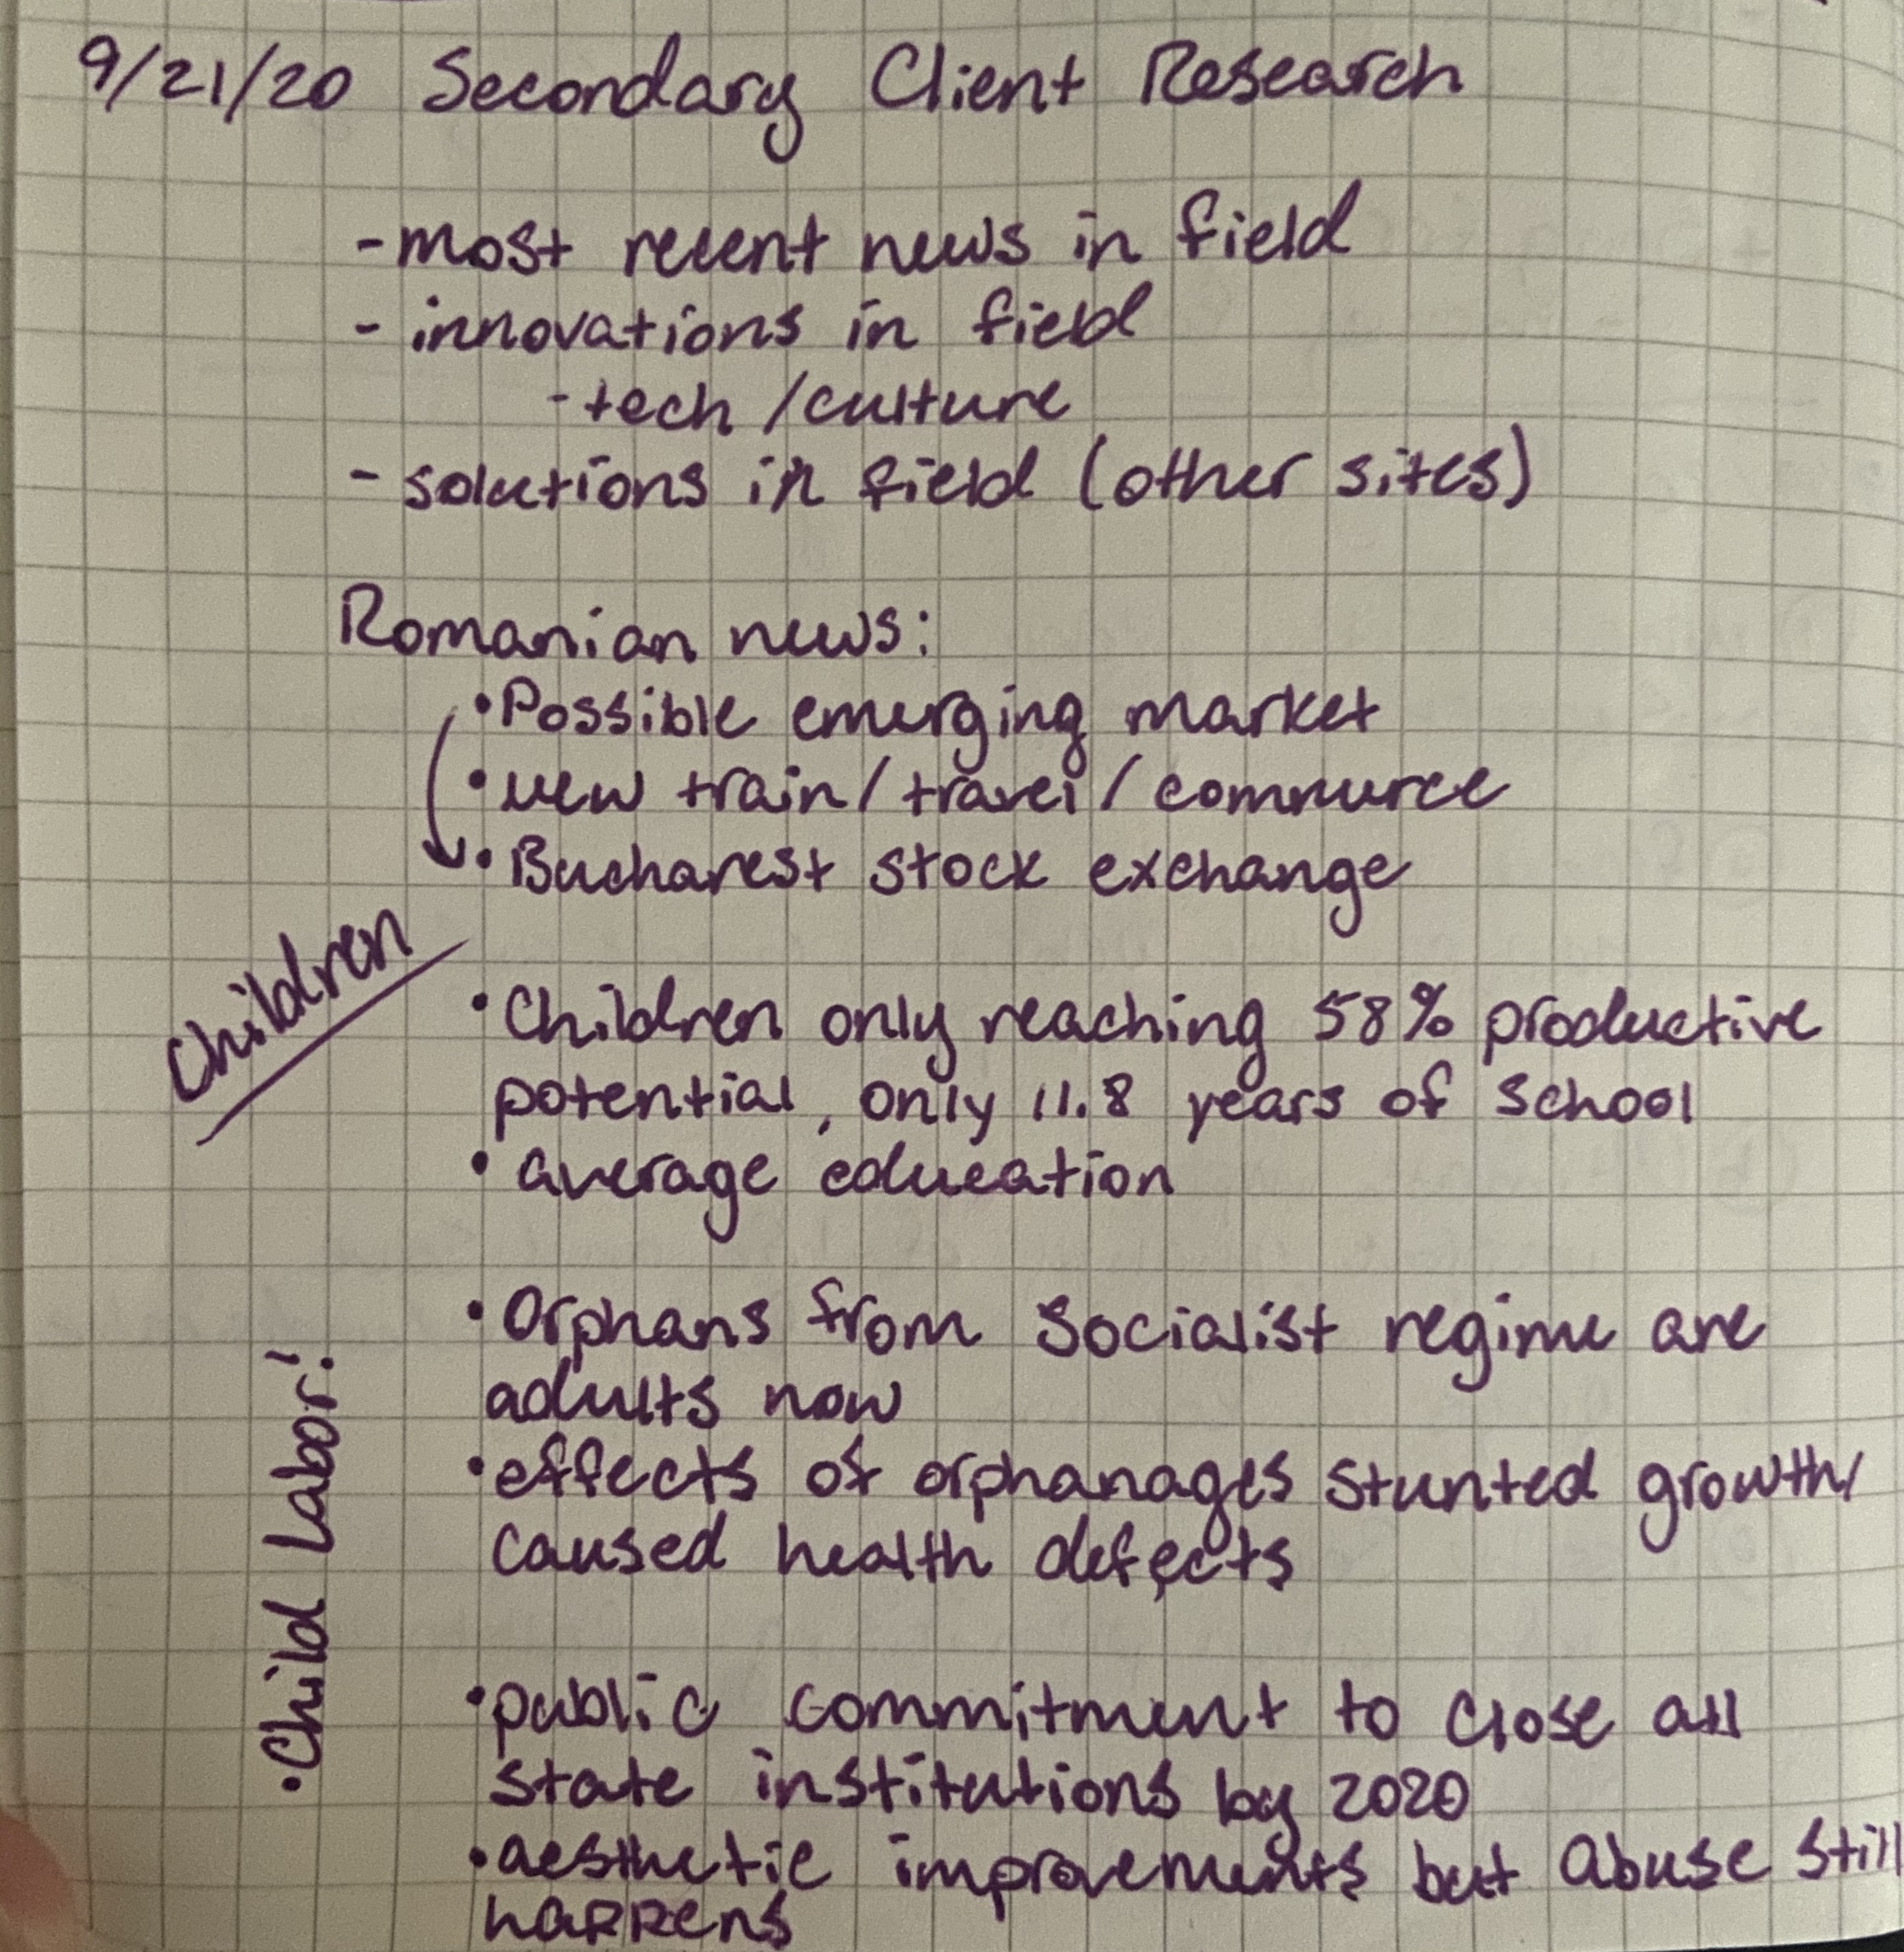 9/21/20 Secondary Client Research
- most recent news in field
- innovations in field
- tech / culture
- solutions in field (other sites)
Romanian news:
• Possible emerging market
• new train / travel / commerce
• Bucharest stock exchange
Children
• Children only reaching 58% productive
potential, only 11.8 years of school
• average education
• Orphans from Socialist regime are
adults now
• effects of orphanages stunted growth/
caused health defects
• Child Labor!
• public commitment to close all
state institutions by 2020
• aesthetic improvements but abuse still
happens